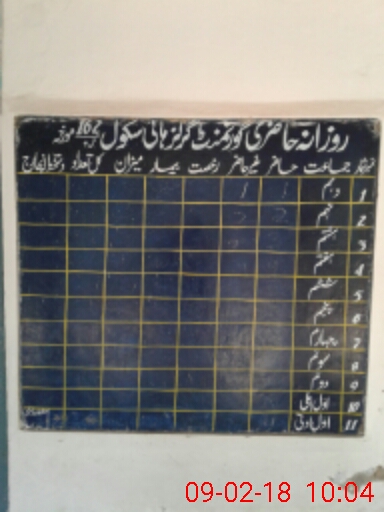 روزانہ حاضری گورنمنٹ گرلز ہائی سکول 167 مورخہ
نمبرشمار جماعت حاضر غیرحاضر رخصت بیمار میزان کل تعداد دستخط انچارج
1 دہم
2 نہم
3 ہشتم
4 ہفتم
5 ششم
6 پنجم
7 چہارم
8 سوئم
9 دوئم
10 اول اعلیٰ
11 اول ادنیٰ
09-02-18 10:04